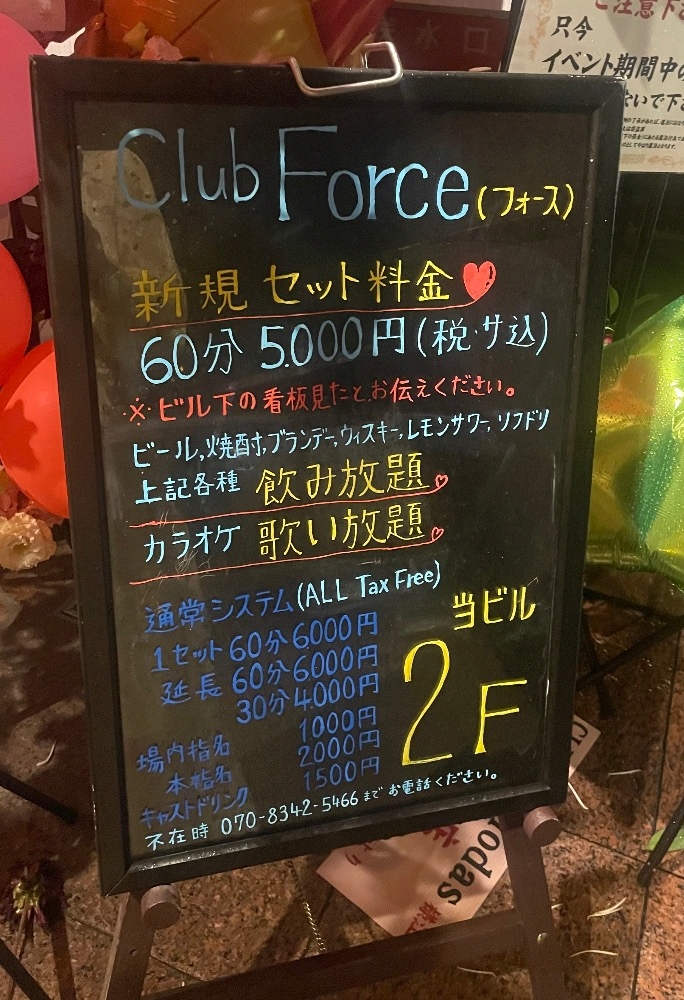 Club Force (フォース)
新規 セット料金
60分 5.000円 (税・サ込)
※ビル下の看板見たとお伝えください。
ビール,焼酎,ブランデー,ウィスキー,レモンサワー,ソフドリ
上記各種 飲み放題
カラオケ 歌い放題
通常システム(ALL Tax Free)
1セット 60分 6.000円
延長 60分 6.000円
30分 4.000円
場内指名 1000円
本指名 2000円
キャストドリンク 1500円
当ビル
2F
不在時 070-8342-5466 まで お電話ください。
ご注意下
只今
イベント期間中の
ないで下さ
水口
odas